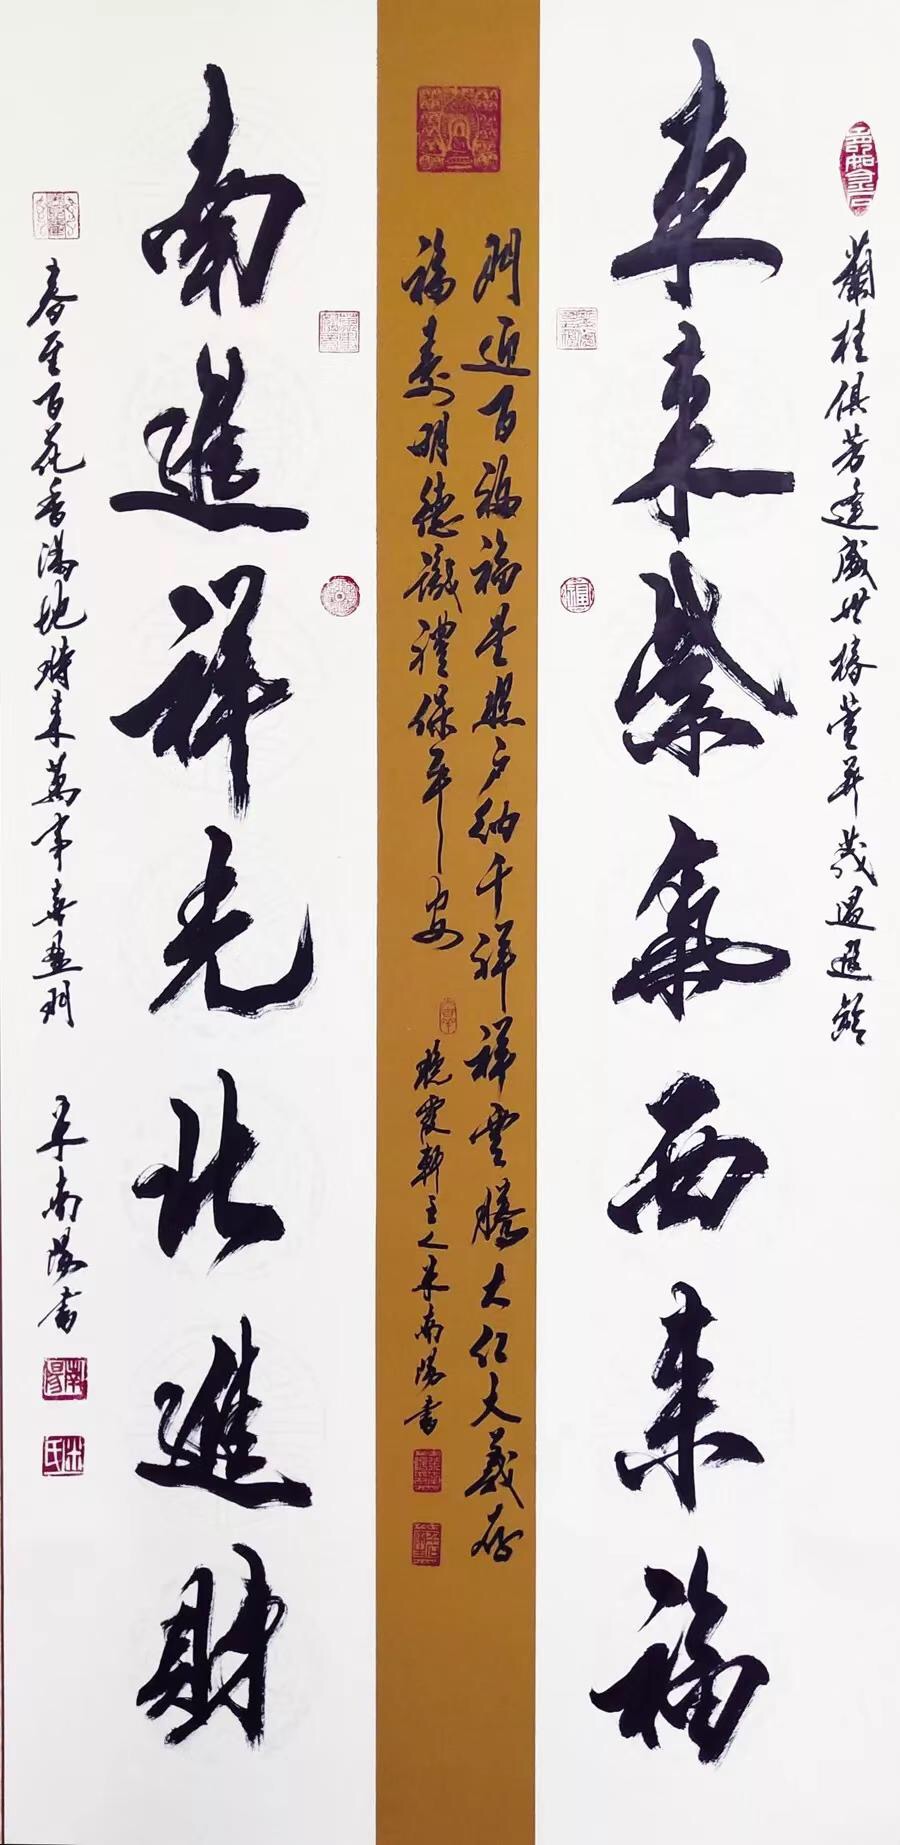 蘭桂俱芳逢盛世椿萱并茂遇遐齡
東來紫氣西來福
門迎百福福星照户納千祥祥雲騰大仁大義存
福壽明德識禮保平安
晚霞軒主人米南陽書
南進祥光北進財
春至百花香滿地時來萬事喜盈門
米南陽書
南陽
米氏